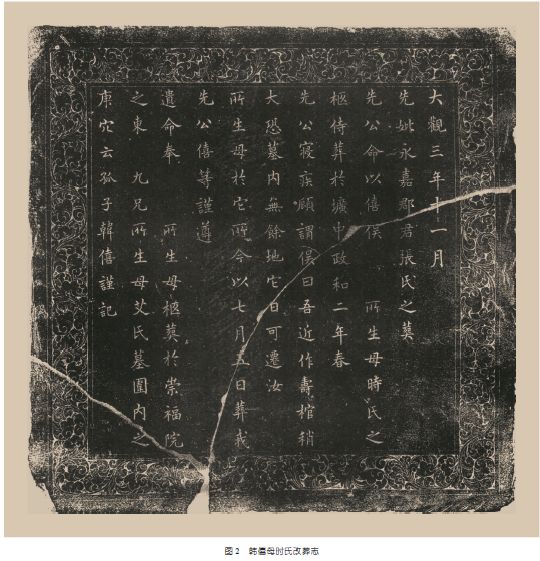 大觀三年十一月
先妣永嘉郡君張氏之葬
先公命以僖俁 所生母時氏之
柩侍葬於壙中政和二年春
先公寢疾顧謂俁曰吾近作壽棺稍
大恐墓內無餘地它日可遷汝
所生母於它所今以七月五日葬我
先公僖等謹遵
遺命奉 所生母柩葬於崇福院
之東 九兄所生母艾氏墓園內之
庚穴云孤子韓僖謹記
图2 韩僖母时氏改葬志